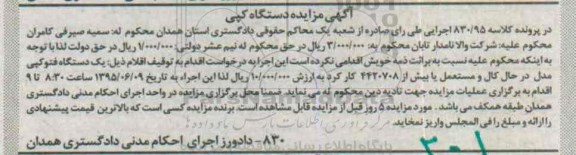 آگهی مزایده دستگاه کپی
در پرونده کلاسه ۸۳۰/۹۵ اجرایی طی رای صادره از شعبه یک محاکم حقوقی دادگستری استان همدان محکوم له: سمیه صیرفی کامران
محکوم علیه: شرکت والا نامدار تابان محکوم به: ۳/۰۰۰/۰۰۰ ریال در حق محکوم له نیم عشر دولتی: ۱/۰۰۰/۰۰۰ ریال در حق دولت لذا با توجه
به اینکه محکوم علیه نسبت به برائت ذمه خویش اقدامی نکرده است این اجرا به درخواست اقدام به توقیف اقلام ذیل: یک دستگاه کپی
مدل در حال کال و مستعمل با بیش از ۴۴۲۰۷۰۸ کار کرد به ارزش ۱۰/۰۰۰/۰۰۰ ریال لذا این اجراء به تاریخ ۱۳۹۵/۰۶/۰۹ ساعت ۸:۳۰ تا ۹
اقدام به برگزاری عملیات مزایده جهت تادیه دین محکوم له می نماید. ضمنا محل برگزاری مزایده در واحد اجرای احکام مدنی دادگستری
همدان طبقه همکف می باشد. مورد مزایده ۵ روز قبل از مزایده قابل مشاهده است. برنده مزایده کسی است که بالاترین قیمت پیشنهادی
را ارائه و مبلغ را فی المجلس واریز نماید.
۸۳۰- دادورز اجرای احکام مدنی دادگستری همدان